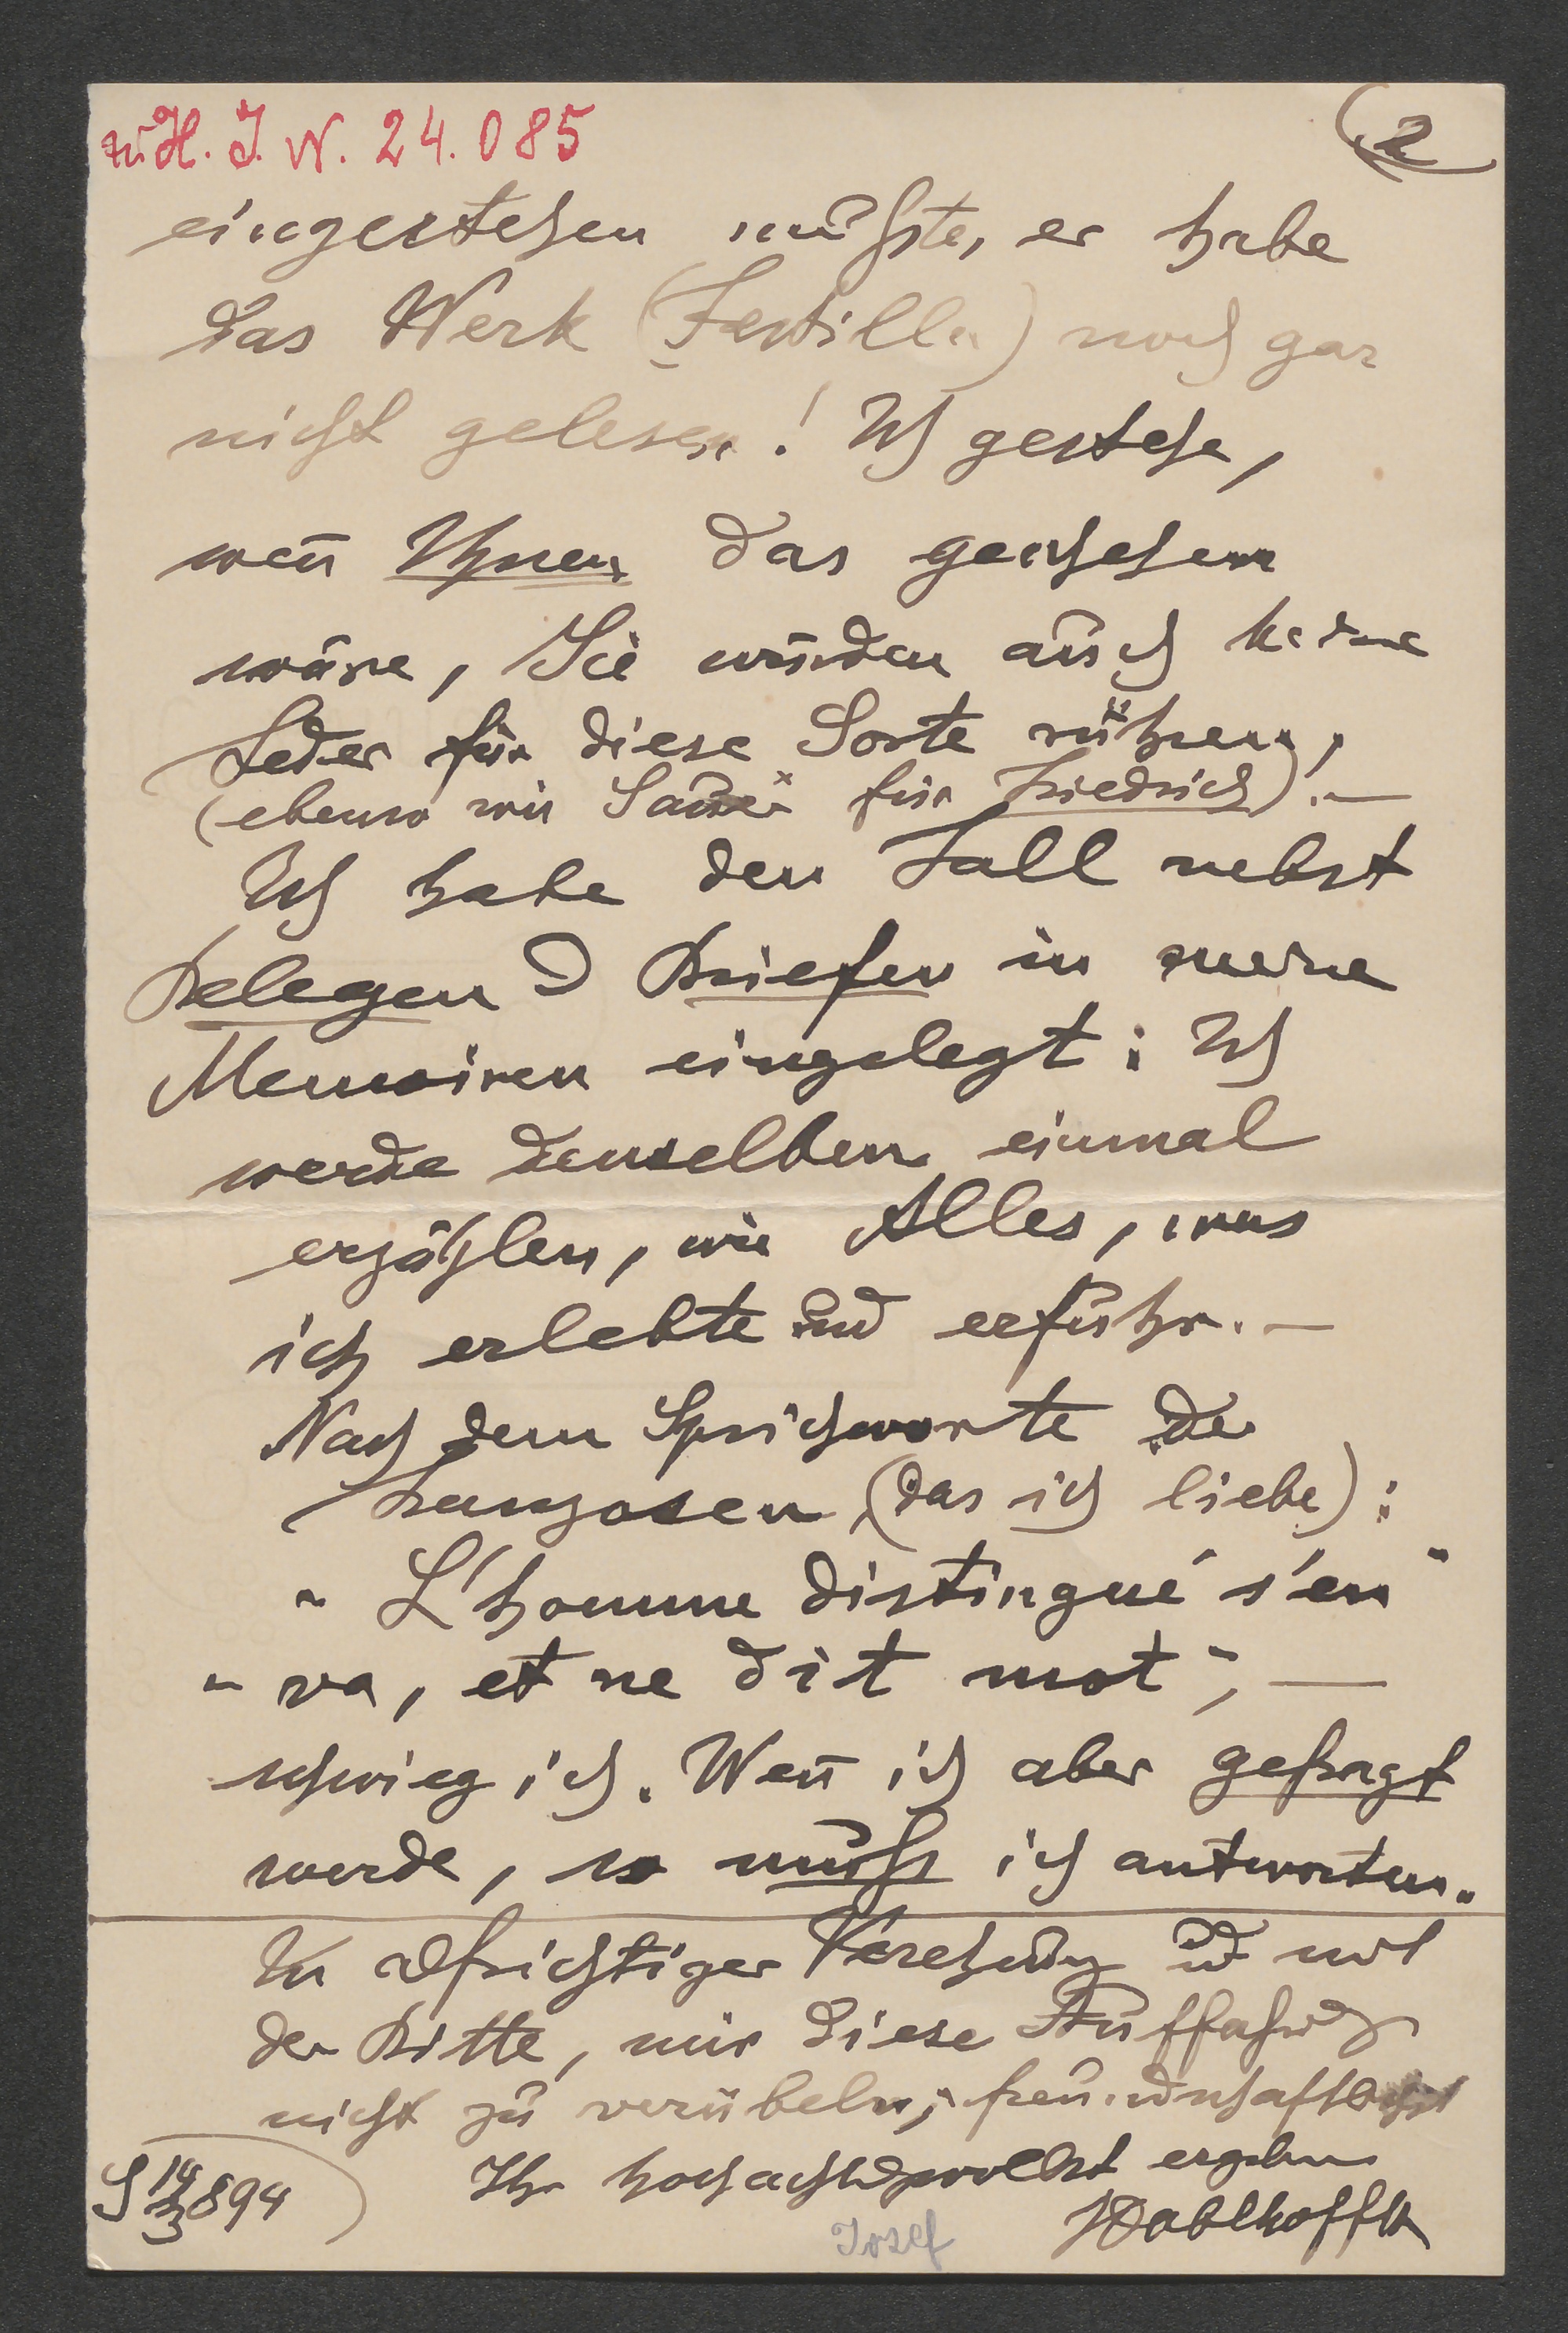 zu H. I. N. 24.085
2
eingestehen mußte, er habe
das Werk (Fertilla) noch gar
nicht gelesen! Ich gestehe,
weñ Ihnen das geschehen
wäre, Sie würden auch keine
Feder für diese Sorte rühren,
(ebenso wie Sauer für Friedrich).—
Ich habe den Fall nebst
Belegen & Briefen in meine
Memoiren eingelegt: Ich
werde denselben einmal
erzählen, wie Alles, was
ich erlebte und erfuhr.—
Nach dem Sprichworte der
Franzosen (das ich liebe):
"L'homme distingué s'en"
"va, et ne dit mot",—
schwieg ich. Weñ ich aber gefragt
werde, so muß ich antworten.
In aufrichtiger Verehrung und mit
der Bitte, mir diese Auffassung
nicht zu verübeln, freundschaftlichst
Ihr hochachtungsvollst ergebener
S 14/3 894
Josef
JDoblhoff